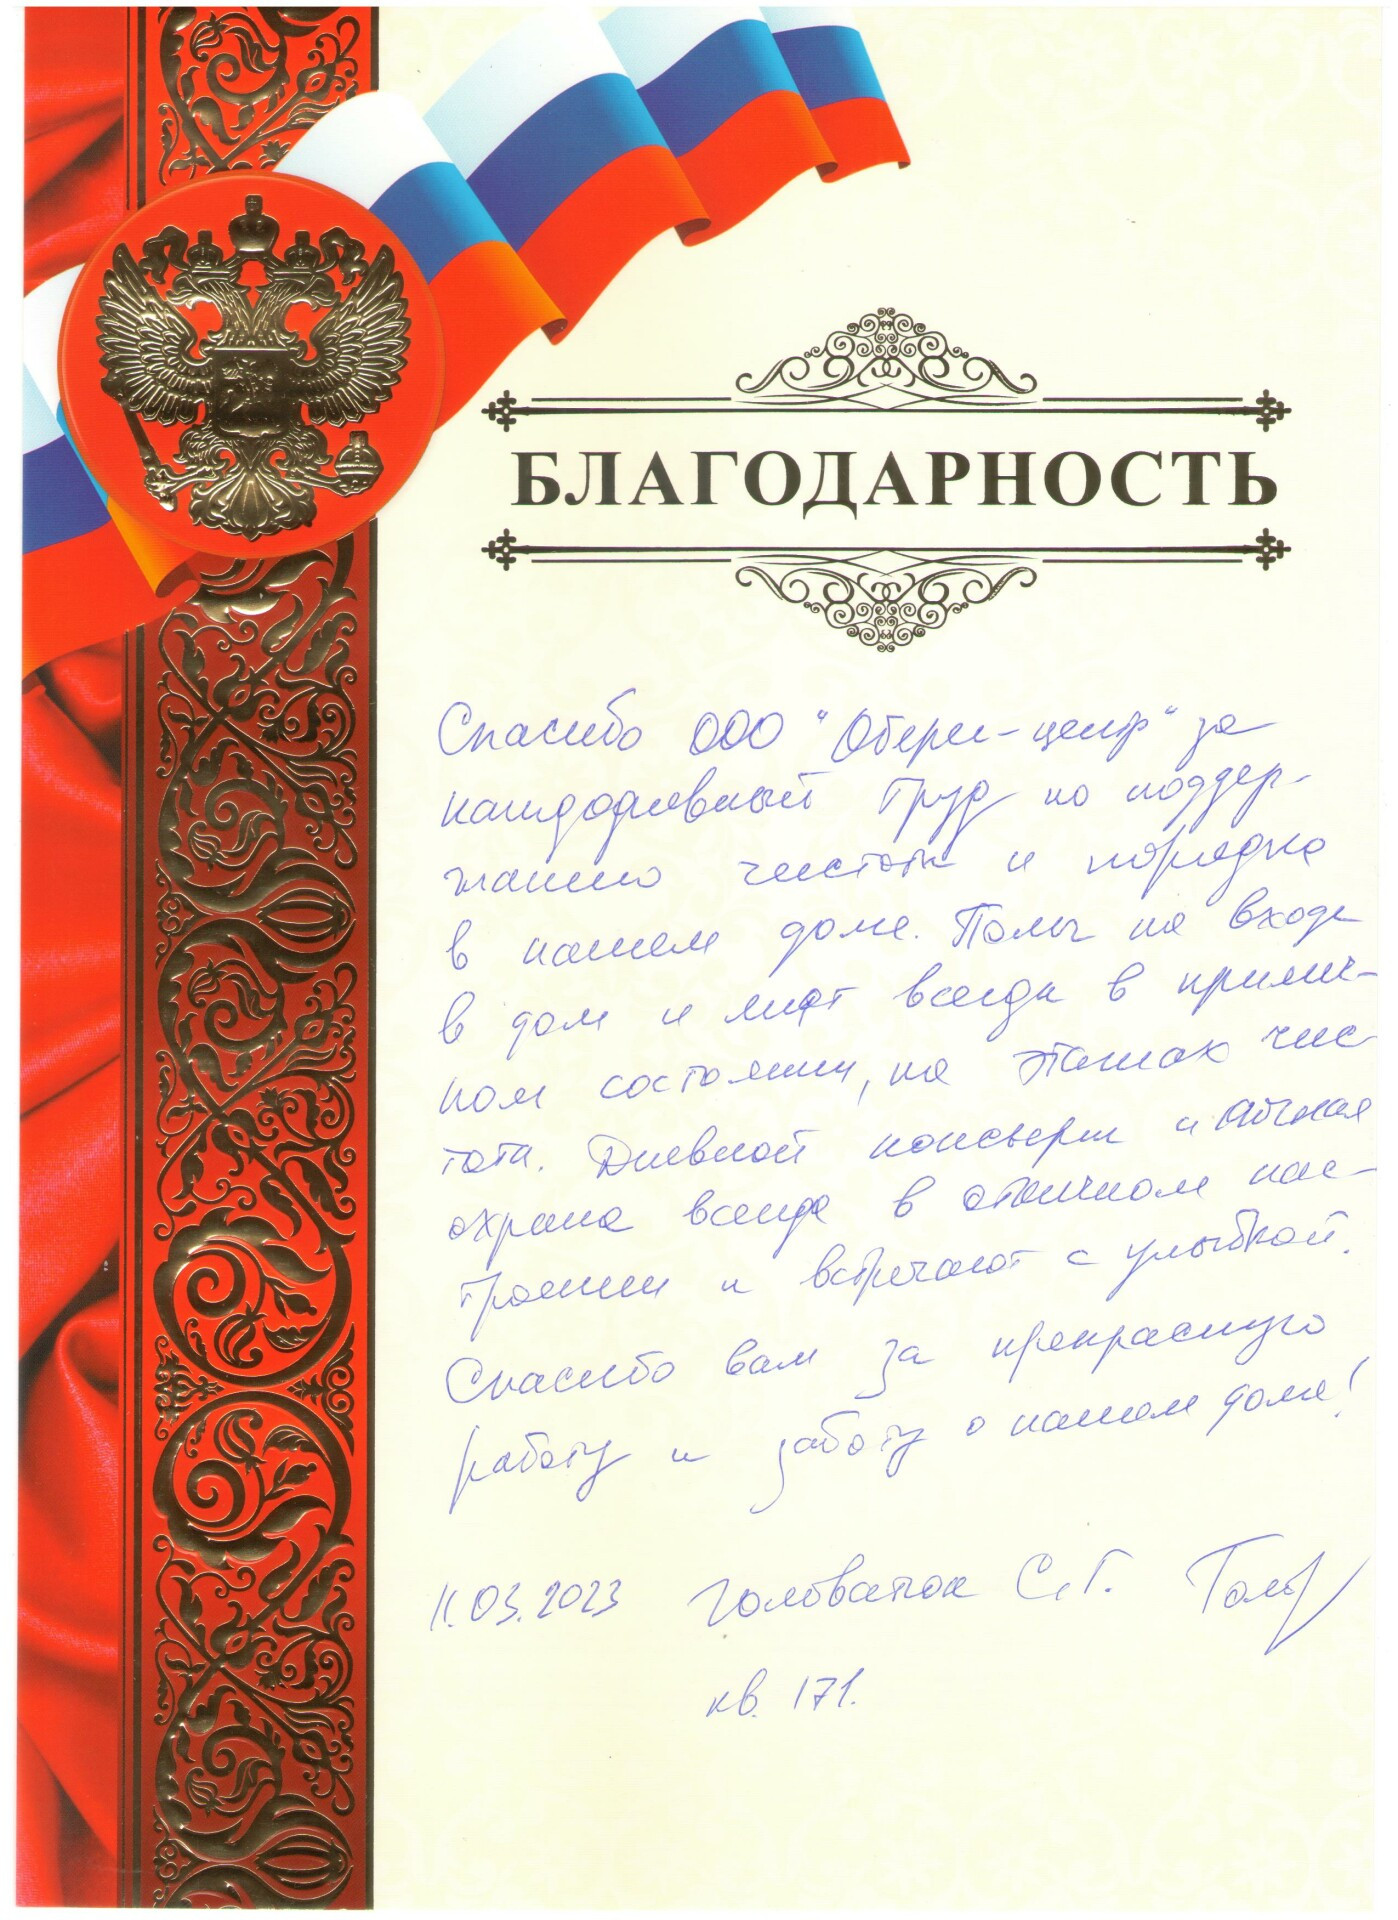 БЛАГОДАРНОСТЬ
Спасибо ООО "Оберег-центр" за
каждодневный труд по поддер-
жанию чистоты и порядка
в нашем доме. Полы на входе
в дом и лифт всегда в прилич-
ном состоянии, на этажах чис-
тота. Дневной консьерж и ночная
охрана всегда в отличном нас-
троении и встречают с улыбкой.
Спасибо вам за прекрасную
работу и заботу о нашем доме!
11.03.2023 Головатюк С.Г.
кв. 171.